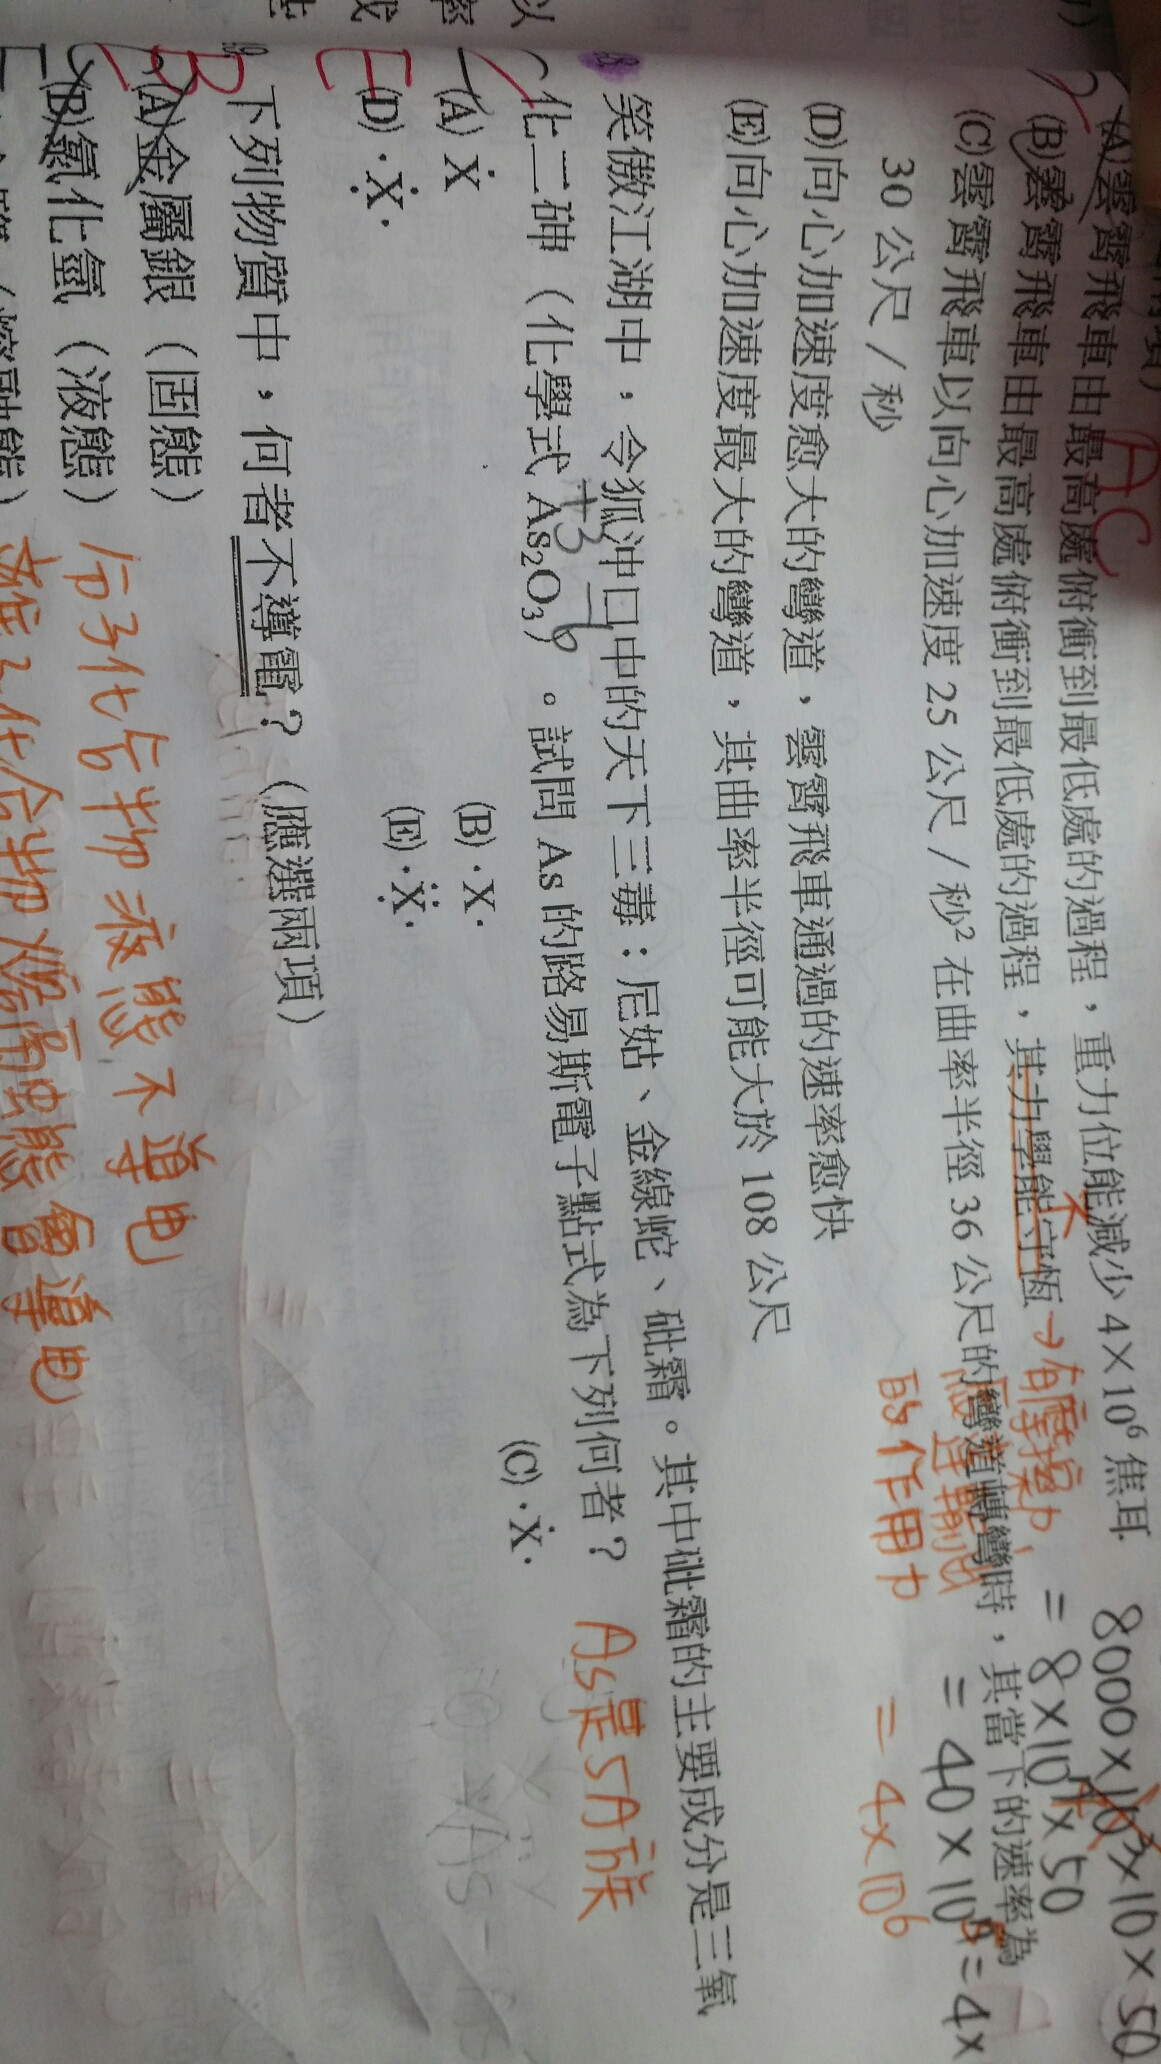 AC
(A)雲霄飛車由最高處俯衝到最低處的過程，重力位能減少 4×10⁶ 焦耳
8000×10³×10×50
(B)雲霄飛車由最高處俯衝到最低處的過程，其力學能守恆
不
→有摩擦力
的作用力
=8×10⁴×50
(C)雲霄飛車以向心加速度 25 公尺／秒² 在曲率半徑 36 公尺的彎道轉彎時，其當下的速率為
30 公尺／秒
=40×10⁵=4×
=4×10⁶
(D)向心加速度愈大的彎道，雲霄飛車通過的速率愈快
(E)向心加速度最大的彎道，其曲率半徑可能大於 108 公尺
C
28.
笑傲江湖中，令狐沖口中的天下三毒：尼姑、金線蛇、砒霜。其中砒霜的主要成分是三氧
+3 -6
化二砷（化學式 As₂O₃）。試問 As 的路易斯電子點式為下列何者？
As是5A族
(A) Ẋ (B)·X· (C)·Ẋ·
(D)·Ẋ̣· (E)·Ẍ̣·
E
下列物質中，何者不導電？（應選兩項）
B
(A)金屬銀（固態）
(B)氯化氫（液態）
分子化合物液態不導电
離子化合物熔融態會導电